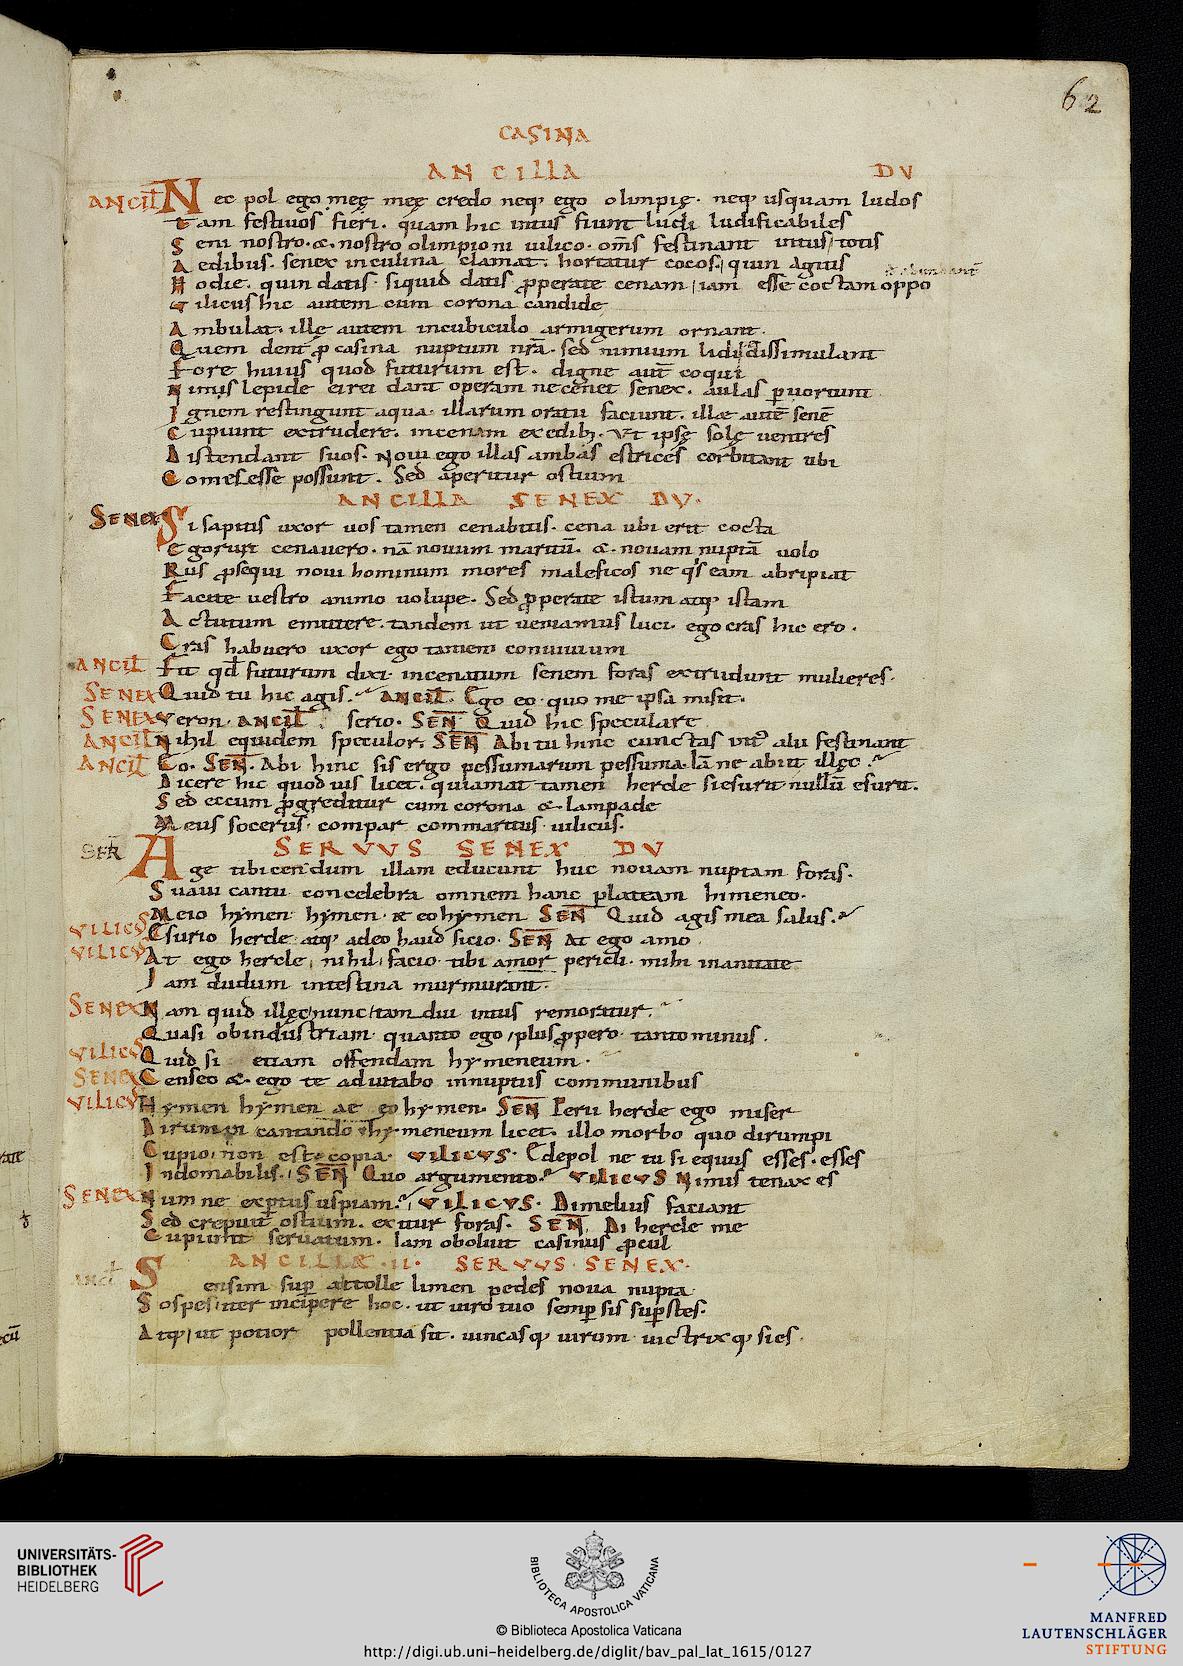 62
CASINA
ANCILLA DV
ANCIL̄ Nec pol ego męę męę credo neq; ego olimpię. neq; usquam ludos
tam festiuos fieri. quam hic intus fiunt ludi ludificabiles
Seni nostro. &. nostro olimpioni uilico. om̄s festinant intus totis
Aedibus. senex inculina clamat. hortatur cocos. quin agitis
Hodie. quin datis. siquid datis ꝓperate cenam iam esse coctam oppo
Vilicus hic autem cum corona candide
Ambulat. illę autem incubiculo armigerum ornant.
Quem dent ꝓ casina nuptum nr̄ā. sed nimium lidi dissimulant
Fore huius quod futurum est. digne aut̄ coqui
Nimis lepide eirei dant operam necenet senex. aulas ꝑuortunt
Ignem restingunt aqua. illarum oratu faciunt. illæ autē senē
Cupiunt extrudere. incenam exedib; Vt ipsę solę uentres
Distendant suos. Noui ego illas ambas estrices corbitant ubi
Comesesse possunt. Sed aperitur ostium
ANCILLA SENEX DV.
SENEX Si sapitis uxor uos tamen cenabitis. cena ubi erit cocta
Egoruri cenauero. nā nouum maritū. &. nouam nuptā uolo
Rus ꝓsequi noui hominum mores maleficos ne q's eam abripiat
Facite uestro animo uolupe. Sed ꝓperate istum atq; istam
Actutum emittere. tandem ut ueniamus luci. ego cras hic ero.
Cras habuero uxor ego tamen conuiuium
ANCIL̄ Fit qd̄ futurum dixi. incenatum senem foras extrudunt mulieres.
SENEX Quid tu hic agis. ANCIL̄. Ego eo. quo me ipsa misit.
SENEX Veron. ANCIL̄. serio. SEN̄ Quid hic speculare
ANCIL̄ Nihil equidem speculor. SEN̄ Abi tu hinc cunctas int' alii festinant
ANCIL̄ Eo. SEN̄. Abi hinc sis ergo pessumarum pessuma. Iā ne abiit illęc
Dicere hic quoduis licet. quiamat tamen hercle siesurit nullū esurit.
Sed eccum ꝓgreditur cum corona & lampade
Meus socerus. compar commaritus uilicus.
SER̄ SERVVS SENEX DV
Age tibicen dum illam educunt huc nouam nuptam foras.
Suaui cantu concelebra omnem hanc plateam himeneo.
Meio hymen hymen. æ eohymen SEN̄ Quid agis mea salus.
VILICVS Esurio hercle atq; adeo haud sicio. SEN̄ At ego amo
VILICVS At ego hercle nihil facio tibi amor pericli. mihi inanitate
Iam dudum intestina murmurant.
SENEX Nam quid illęc nunc tam diu intus remoratur.
Quasi obindustriam quanto ego plus ꝓpero tanto minus.
VILICVS Quid si etiam offendam hymeneum.
SENEX Censeo &. ego te adiutabo innuptiis communibus
VILICVS Hymen hymen ae eo hymen. SEN̄ Perii hercle ego miser
Dirumpi cantando hymeneum licet. illo morbo quo dirumpi
Cupio non est copia. VILICVS. Edepol ne tu si equus esses. esses
Indomabilis. SEN̄ Quo argumento. VILICVS Nimis tenax es
SENEX Num ne exꝑtus uspiam. VILICVS. Dimelius faciant
Sed crepuit ostium. exitur foras. SEN̄. Di hercle me
Cupiunt seruatum. Iam oboluit casinus ꝓcul
ANCILLÆ. II. SERVVS SENEX.
ANCL̄ Sensim suꝑ attolle limen pedes noua nupta
Sospes iter incipere hoc. ut uiro tuo semꝑ sis suꝑstes.
Atq; ut potior pollentia sit. uincasq; uirum uictrixq; sies.
UNIVERSITÄTS-
BIBLIOTHEK
HEIDELBERG
BIBLIOTECA APOSTOLICA VATICANA
© Biblioteca Apostolica Vaticana
http://digi.ub.uni-heidelberg.de/diglit/bav_pal_lat_1615/0127
MANFRED
LAUTENSCHLÄGER
STIFTUNG